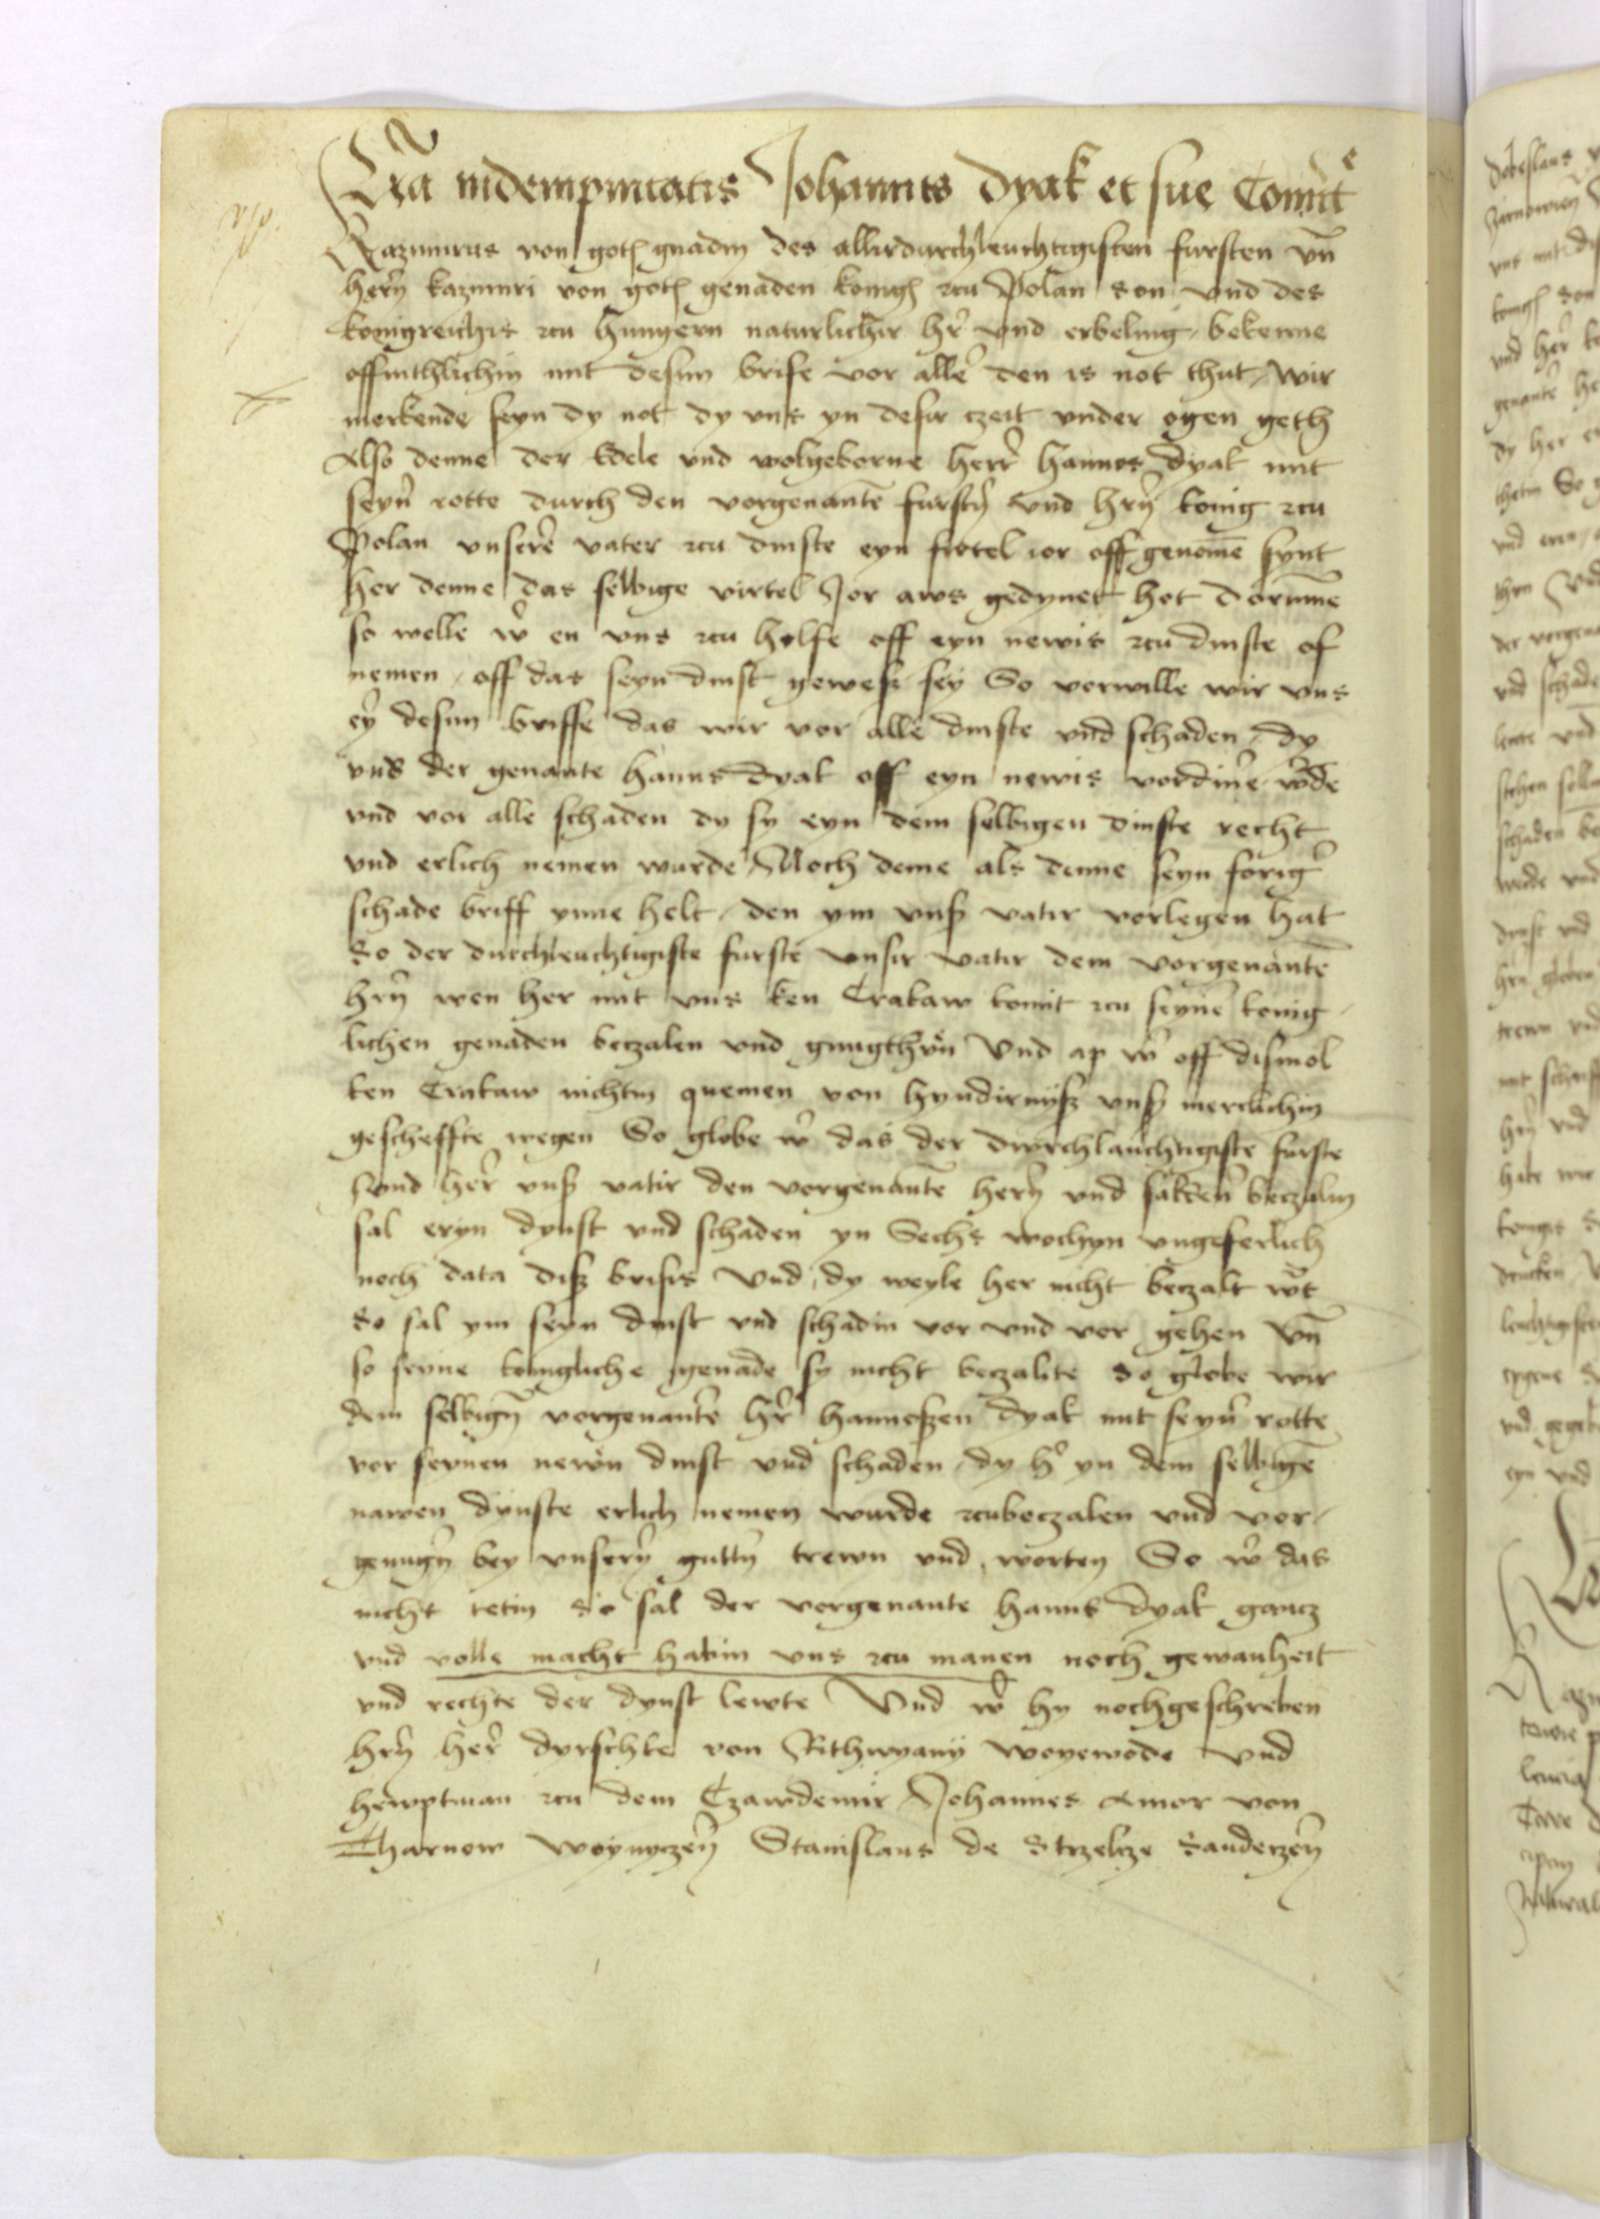 Lra indempnitatis Johannis Dyak et sue Comit
Kazimirus von gots gnadin des allirdurchleuchtigisten fursten vnd
hern kazimiri von gots genaden konigs czu Polan son vnd des
konigreichis czu hungern naturlichir her vnd erbeling bekenne
offinthlichin mit desim brife vor alle den is not thut, wir
merkende seyn dy not dy vns yn desir czeit vnder ogen geth
Also denne der Edele vnd wolgeborne herr hannos dyak mit
seyn rotte durch den vorgenante fursten vnd hrn konig czu
Polan vnsere vater czu dinste eyn firtel ior off genome synt
her denne das selbige virtel Jor aws gedynet hot dorumme
so welle wir en vns czu holfe off eyn newis czu dinste of
nemen, off das seyn dinst gewest sey So vorwille wir vns
ey desim briffe das wir vor alle dinste vnd schaden, dy
vns der genante hanns dyak off eyn newis vordine wurde
vnd vor alle schaden dy sy eyn dem selbigen dinste recht
vnd erlich nemen wurde Noch deme als denne seyn forig
schade briff ynne helt, den ym vnser vatir vorlegen hat
So der durchleuchtigiste furste vnsir vatir dem vorgenante
hrn wen her mit vns ken Crakaw komit czu seyne konig
lichen genaden beczalen vnd gnugthun Vnd ap wir off dismol
ken Crakaw nichtin quemen von hyndirnisz vnser merclichin
gescheffte wegen So globe wir das der durchlauchtigiste furste
vnd her vnser vatir den vorgenante hern vnd beczalin
sal eryn dynst vnd schaden yn Sechs wochyn vngeferlich
noch data disz brifis Vnd dy weyle her nicht beczalt wirt
So sal ym seyn dinst vnd schadin vor vnd vor gehen vnd
so seyne konigliche genade sy nicht beczalite So globe wir
dem selbign vorgenante her hannoszen dyak mit seyn rotte
vor seynen newin dinst vnd schaden, dy her yn dem selbige
nawen dynste erlich nemen wurde czubeczalen vnd vor
genugn bey vnsern guttn trewn vnd worten So wir das
nicht tetin So sal der vorgenante hanns dyak gancz
vnd volle macht habin vns czu manen noch gewanheit
vnd rechte der dynst lewte Vnd wir hy nochgeschreben
hrn her dyrschke von Rithwyany woyewode vnd
hewptman czu dem Czawdemir Johannes Amor von
Tharnow woynyczen Stanislaus de Strzelcze Sandeczen